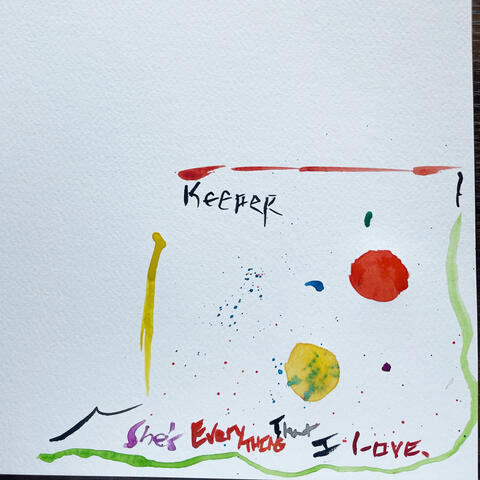 KEEPER
She's EVERYTHING That I LOVE.